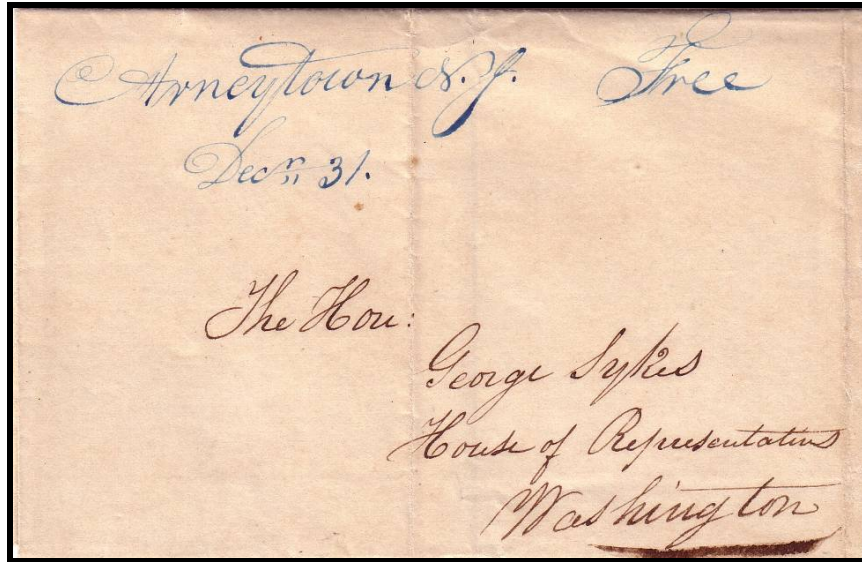 Arneytown N.J. Free
Decr. 31.
The Hon:
George Sykes
House of Representatives
Washington